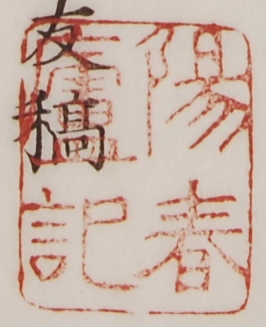 陽春
廬記
友稿